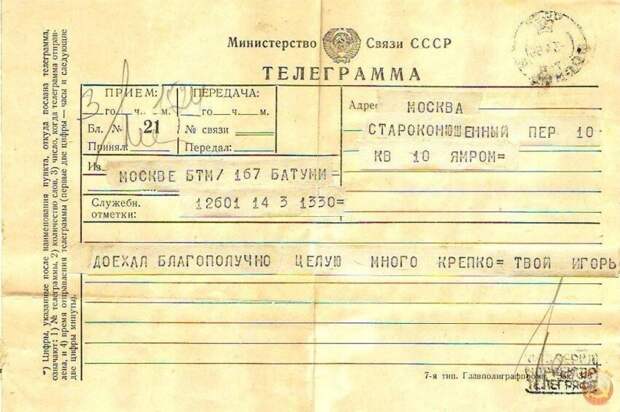 Министерство Связи СССР
ТЕЛЕГРАММА
ПРИЕМ:
го ч. м.
Бл. №
21
Принял:
ПЕРЕДАЧА:
го ч. м.
№ связи
Передал:
Адрес
МОСКВА
СТАРОКОНЮШЕННЫЙ ПЕР 10
КВ 10 ЯМРОМ=
Из
МОСКВЕ БТМ/ 167 БАТУМИ=
Служебн.
отметки:
12601 14 3 1330=
ДОЕХАЛ БЛАГОПОЛУЧНО ЦЕЛУЮ МНОГО КРЕПКО= ТВОЙ ИГОРЬ
*) Цифры, указанные после наименования пункта, откуда послана телеграмма,
означают: 1) № телеграммы, 2) количество слов, 3) число, когда телеграмма отправ-
лена, и 4) время отправления телеграммы (первые две цифры — часы и следующие
две цифры минуты).
7-я тип. Главполиграфпрома
ТЕЛЕГРАФ